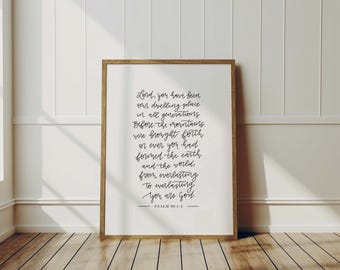 Lord, you have been
our dwelling place
in all generations.
Before the mountains
were brought forth,
or ever you had
formed the earth
and the world,
from everlasting
to everlasting
You are God
PSALM 90:1-2